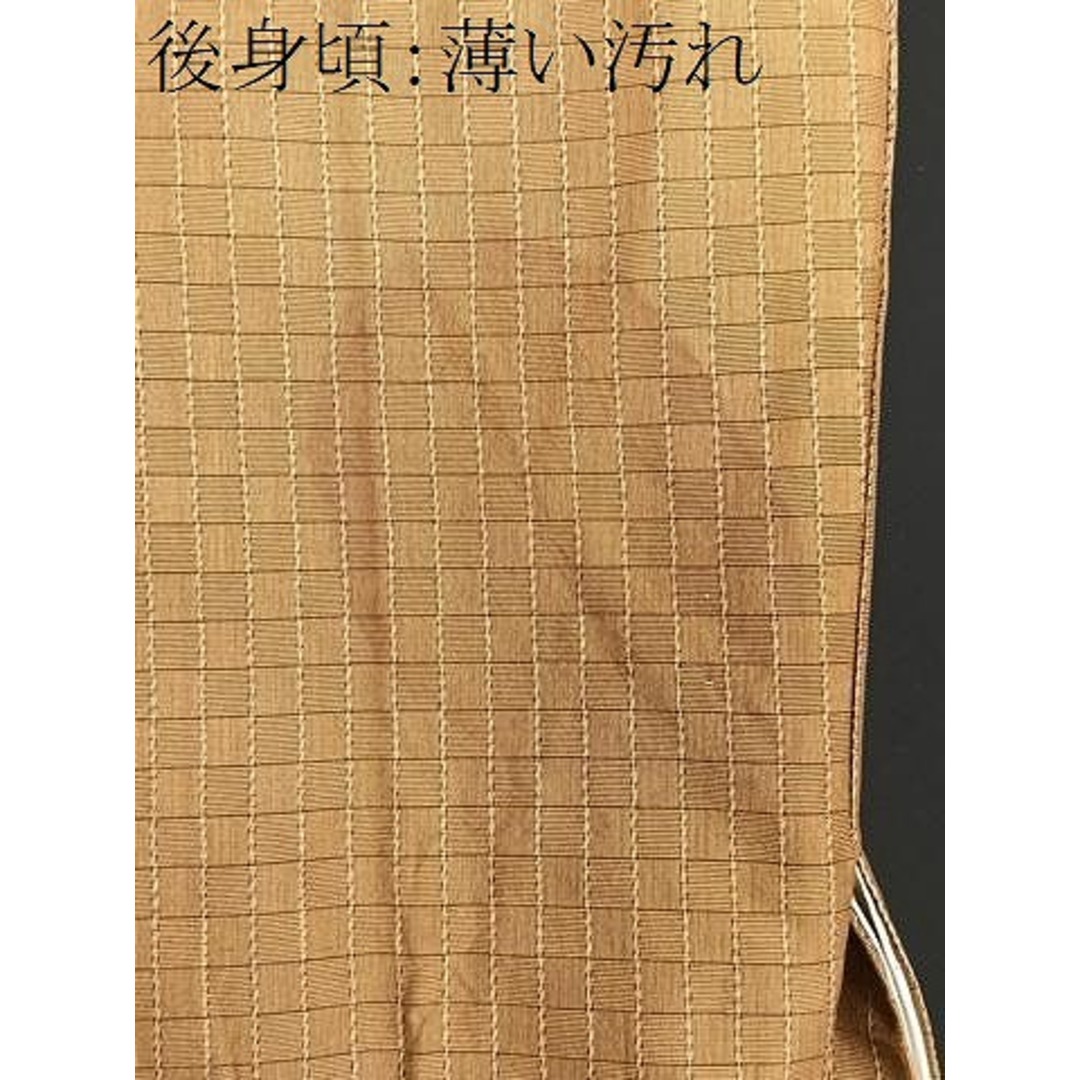 後身頃:薄い汚れ